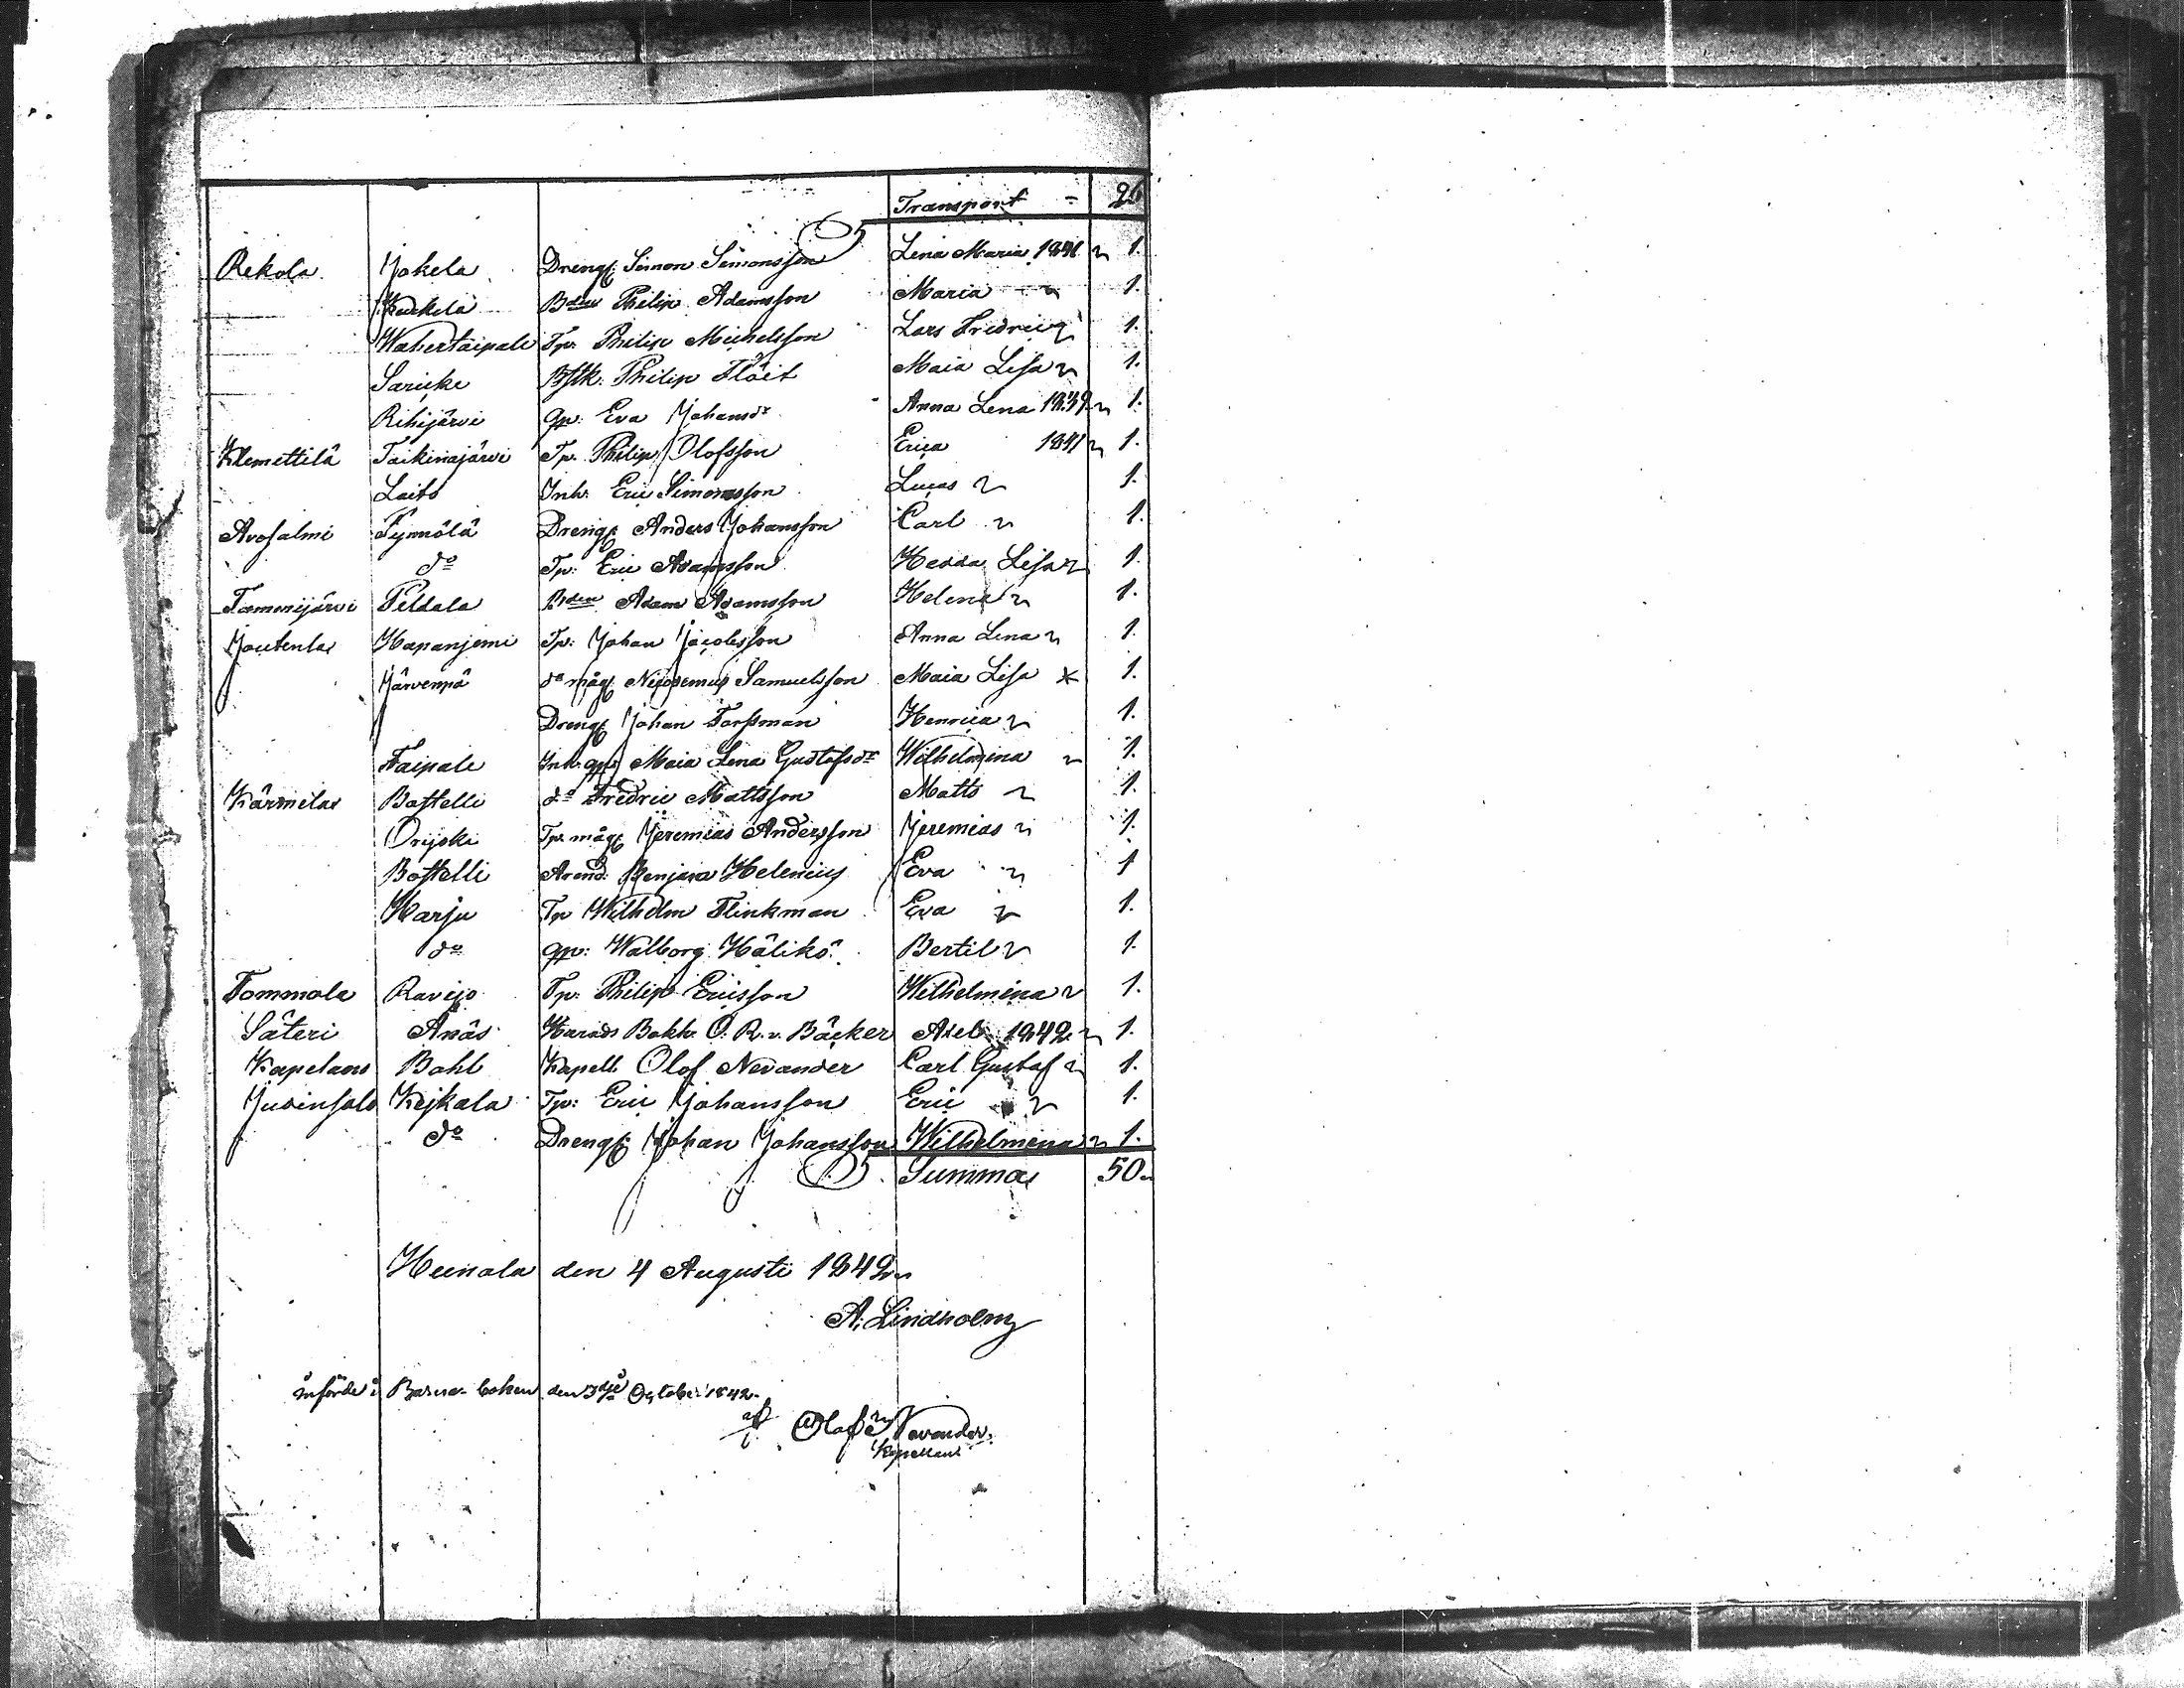 Transport - 26
Rekola Jokela Drengs: Simon Simonsson Lena Maria 1841 1.
Kuckila Bdens Philip Adamsson Maria 1.
Wahertaipale Tp: Philip Michelsson Lars Fredric 1.
Saricke Bstk: Philip Flöit Maia Lisa 1.
Rihijärvi qp: Eva Johansdr Anna Lena 1839 1.
Klemettilä Taikinajärvi Tp. Philip Olofsson Erica 1841 1.
Laito Inh: Eric Simonsson Lucas 1.
Avosalmi Tynnölä Drengs: Anders Johansson Carl 1.
do Tp: Eric Adamsson Hedda Lisa 1.
Tammijärvi Peldala Bden Adam Adamsson Helena 1.
Joutenla Hapanjemi Tp: Johan Jacobsson Anna Lena 1.
Järvenpä do mågs Nicodemus Samuelsson Maia Lisa * 1.
Drengs Johan Forssman Henrica 1.
Taipale Inh. qps Maia Lena Gustafsdr Wilhelmina 1.
Kärmilä Bastelli do Fredric Mattsson Matts 1.
Orijoki Tp. mågs Jeremias Andersson Jeremias 1.
Bastelli Arend: Benjam Helenius Eva 1
Harju Tp Wilhelm Flinkman Eva 1.
do qp: Walborg Hälikö Bertil 1.
Tommola Ravijo Tp: Philip Ericsson Wilhelmina 1.
Säteri Anäs Härads Bokh. O. R. v. Bäcker Axel 1842 1.
Kapelans Bohl Kapell. Olof Nevander Carl Gustaf 1.
Juvinsalo Kejkala Tp: Eric Johansson Eric 1.
do Drengs: Johan Johansson Wilhelmina 1.
Summa 50
Heinola den 4 Augusti 1842
A. Lindholm
införde i Barna-boken den 3dje October 1842
af Olof Nevander.
Kapellan